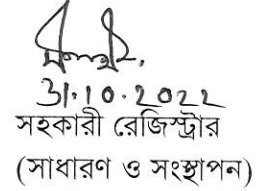 31.10.2022
সহকারী রেজিস্ট্রার
(সাধারণ ও সংস্থাপন)